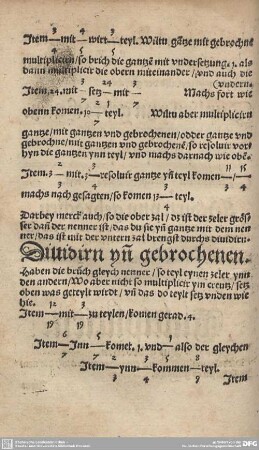 3 4 3
Item — mit — wirt — teyl. Wiltu gātze mit gebrochnē
4 5 5
multiplicirn/so brich die gantzē mit vndersetzung. 1. als
dann multiplicir die obern miteinander/vnd auch die
3 24 3 (vndern.
Item. 24. mit — setz — mit — Machs fort wie
5 1 5
obenn komen. — teyl. Wiltu aber multiplicirn
gantze/mit gantzen vnd gebrochenen/odder gantze vnd
gebrochne/mit gantzen vnd gebrochenē/so resoluir vor
hyn die gantzen ynn teyl/vnd machs darnach wie obē.
Item. 3 — mit. 3 — resoluir gantze yñ teyl komen — / —
machs nach gesagten/so komen 13 — teyl.
Darbey merck auch/so die ober zal/ dz ist der zeler grös
ser dañ der nenner ist/das du sie yñ gantze mit dem nen
ner/das ist mit der vntern zal brengst durchs diuidirn.
Diuidirn yñ gebrochenen.
Haben die brüch gleych nenner/so teyl eynen zeler ynn
den andern/Wo aber nicht so multiplicir yin creutz/setz
oben was geteylt wirdt/vñ das do teylt setz vnden wie
hie. 12 3
Item — mit — zu teylen/komen gerad. 4.
19 19
6 5 1
Item — Inn — komet. 1. vnd — also der gleychen
7 7 5
2 3 8
Item — ynn — kommen — teyl.
Item